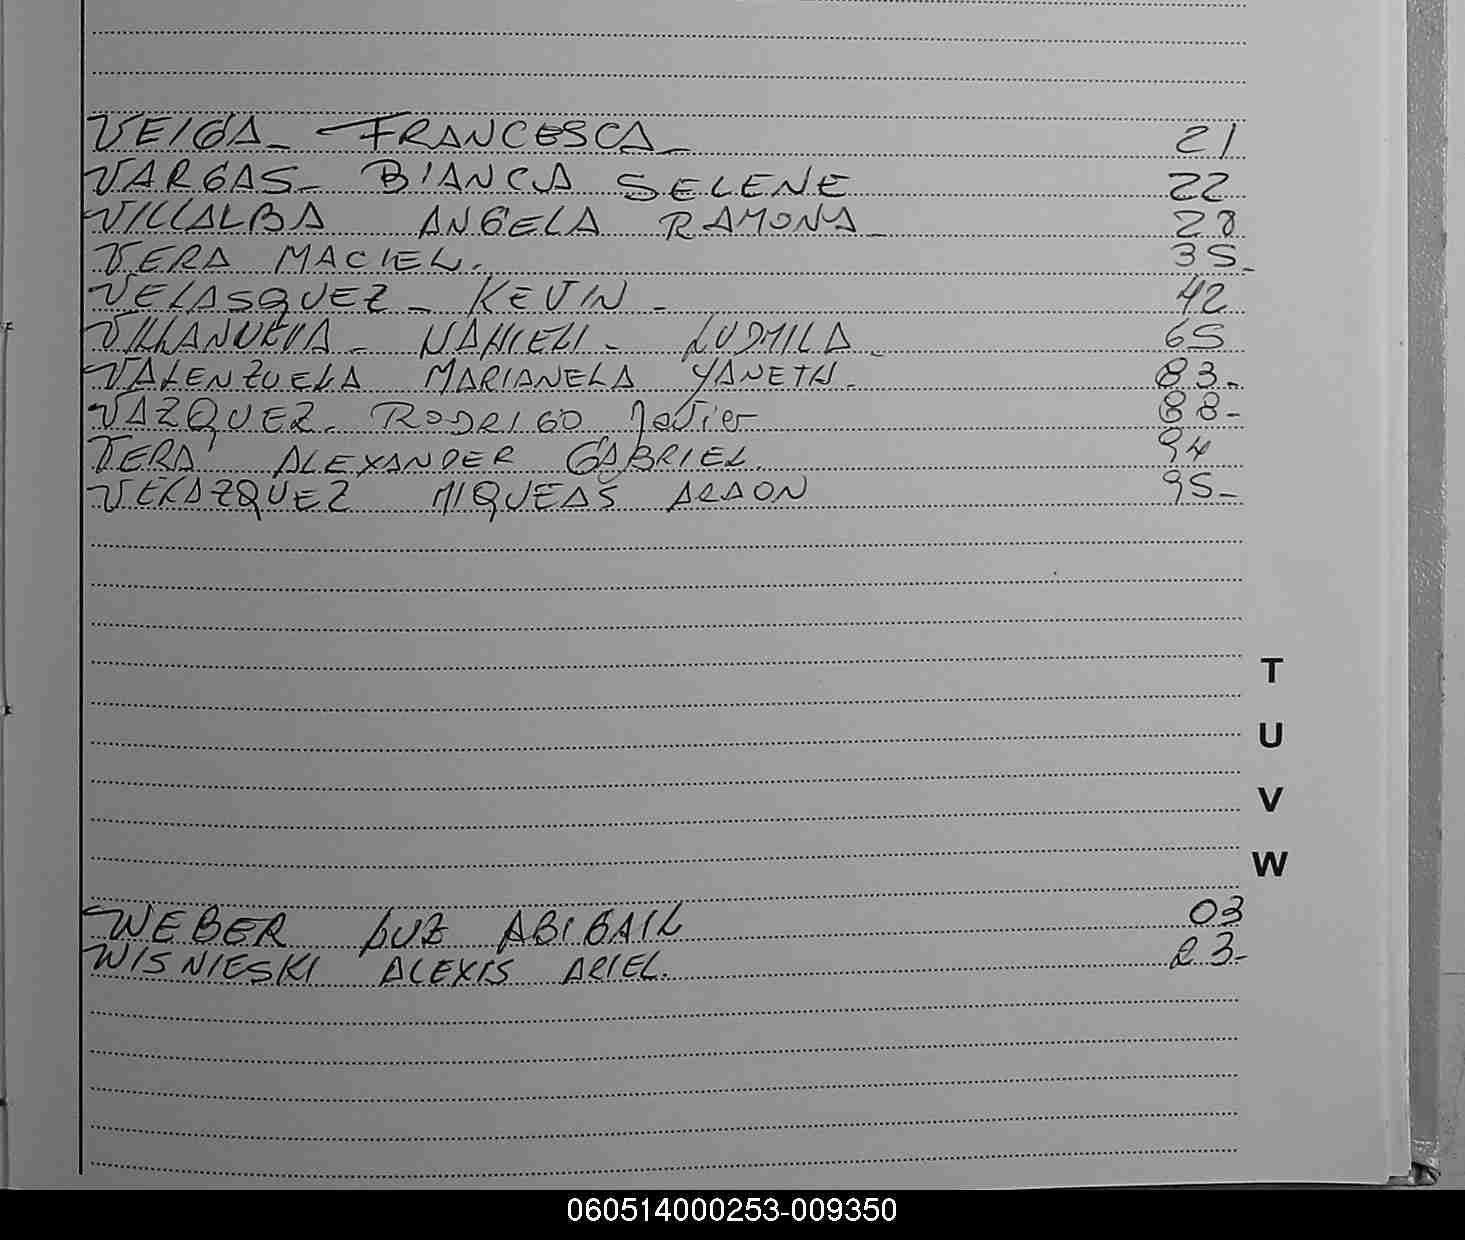 VEIGA_ FRANCESCA_ 21
VARGAS_ BIANCA SELENE 22
VILLALBA ANGELA RAMONA_ 28
VERA MACIEL. 35_
VELASQUEZ_ KEVIN_ 42
VILLANUEVA_ NAHIELI_ LUDMILA_ 65
VALENZUELA MARIANELA YANETH. 83_
VAZQUEZ. RODRIGO Javier 88_
VERA ALEXANDER GABRIEL. 94
VELAZQUEZ MIQUEAS ARAON 95_
T
U
V
W
WEBER LUZ ABIGAIL 03
WISNIESKI ALEXIS ARIEL. 23_
060514000253-009350